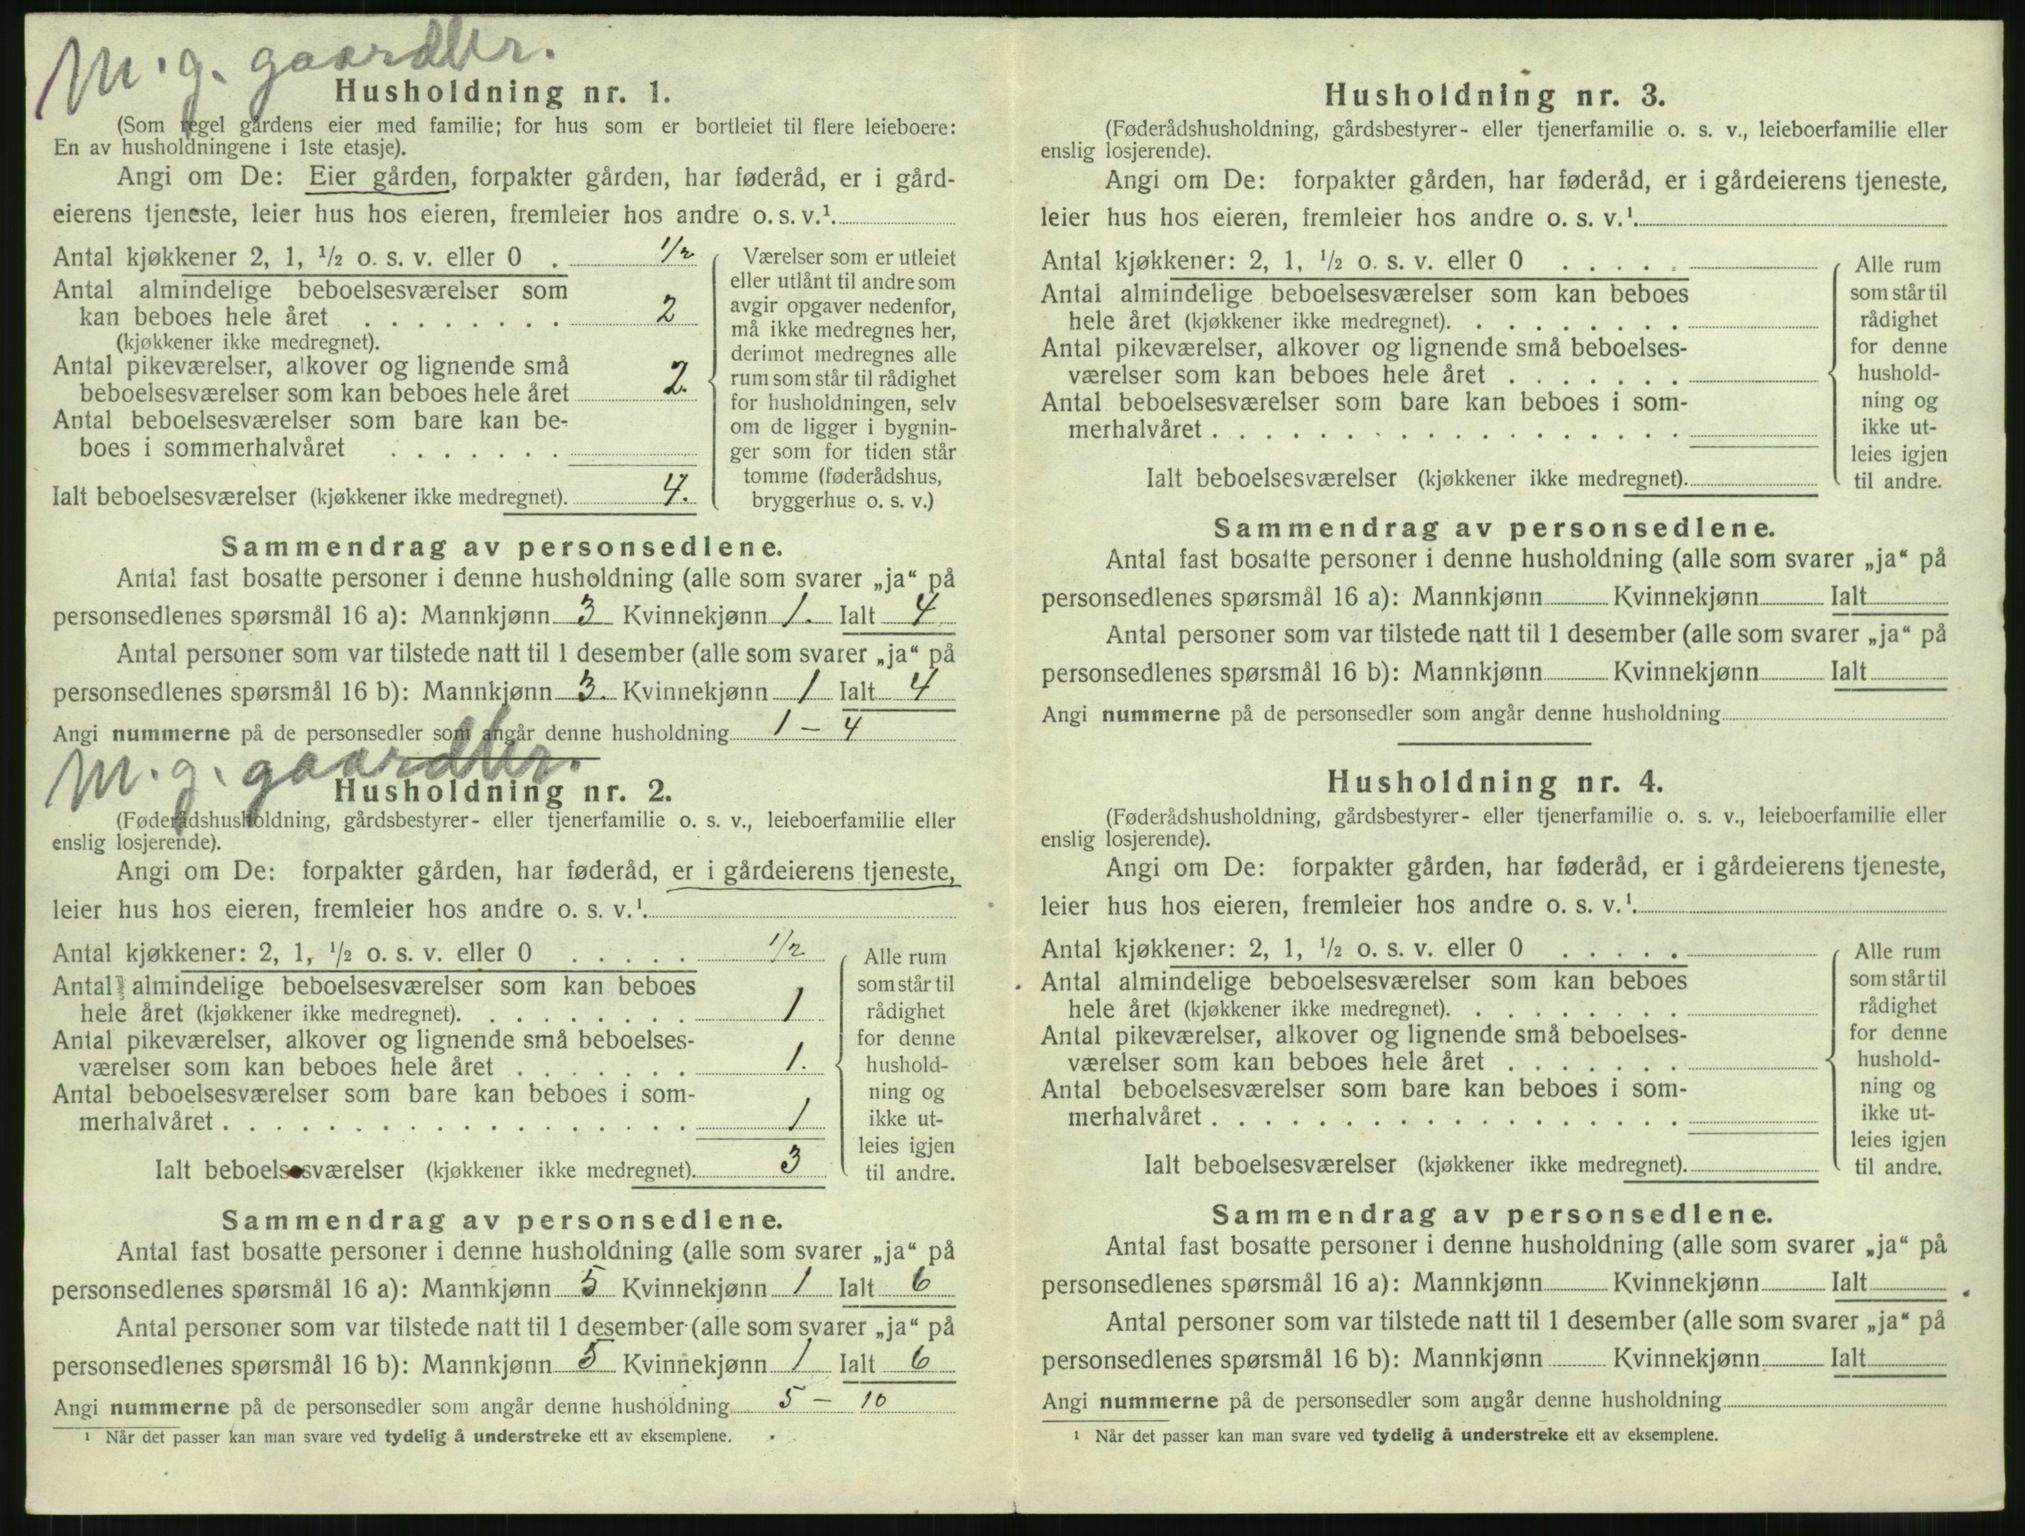 M. g. gaardbr.
Husholdning nr. 1.
(Som regel gårdens eier med familie; for hus som er bortleiet til flere leieboere:
En av husholdningene i 1ste etasje).
Angi om De: Eier gården, forpakter gården, har føderåd, er i gård-
eierens tjeneste, leier hus hos eieren, fremleier hos andre o. s. v.¹.
Antal kjøkkener 2, 1, ½ o. s. v. eller 0 . 1/2
Antal almindelige beboelsesværelser som
kan beboes hele året . . . . . . . . 2
(kjøkkener ikke medregnet).
Antal pikeværelser, alkover og lignende små
beboelsesværelser som kan beboes hele året 2.
Antal beboelsesværelser som bare kan be-
boes i sommerhalvåret . . . . . . .
Ialt beboelsesværelser (kjøkkener ikke medregnet). 4.
Værelser som er utleiet
eller utlånt til andre som
avgir opgaver nedenfor,
må ikke medregnes her,
derimot medregnes alle
rum som står til rådighet
for husholdningen, selv
om de ligger i bygnin-
ger som for tiden står
tomme (føderådshus,
bryggerhus o. s. v.)
Sammendrag av personsedlene.
Antal fast bosatte personer i denne husholdning (alle som svarer „ja“ på
personsedlenes spørsmål 16 a): Mannkjønn 3 Kvinnekjønn 1. Ialt 4
Antal personer som var tilstede natt til 1 desember (alle som svarer „ja“ på
personsedlenes spørsmål 16 b): Mannkjønn 3. Kvinnekjønn 1 Ialt 4
Angi nummerne på de personsedler som angår denne husholdning 1 – 4
M. g. gaardbr.
Husholdning nr. 2.
(Føderådshusholdning, gårdsbestyrer- eller tjenerfamilie o. s. v., leieboerfamilie eller
enslig losjerende).
Angi om De: forpakter gården, har føderåd, er i gårdeierens tjeneste,
leier hus hos eieren, fremleier hos andre o. s. v.¹.
Antal kjøkkener: 2, 1, ½ o. s. v. eller 0 . . . . . 1/2
Antal almindelige beboelsesværelser som kan beboes
hele året (kjøkkener ikke medregnet). . . . . . . . . 1
Antal pikeværelser, alkover og lignende små beboelses-
værelser som kan beboes hele året . . . . . . . 1.
Antal beboelsesværelser som bare kan beboes i som-
merhalvåret . . . . . . . . . . . . . . . . . . 1
Ialt beboelsesværelser (kjøkkener ikke medregnet). 3
Alle rum
som står til
rådighet
for denne
hushold-
ning og
ikke ut-
leies igjen
til andre.
Sammendrag av personsedlene.
Antal fast bosatte personer i denne husholdning (alle som svarer „ja“ på
personsedlenes spørsmål 16 a): Mannkjønn 5 Kvinnekjønn 1 Ialt 6
Antal personer som var tilstede natt til 1 desember (alle som svarer „ja“ på
personsedlenes spørsmål 16 b): Mannkjønn 5 Kvinnekjønn 1 Ialt 6
Angi nummerne på de personsedler som angår denne husholdning 5 – 10
¹ Når det passer kan man svare ved tydelig å understreke ett av eksemplene.
Husholdning nr. 3.
(Føderådshusholdning, gårdsbestyrer- eller tjenerfamilie o. s. v., leieboerfamilie eller
enslig losjerende).
Angi om De: forpakter gården, har føderåd, er i gårdeierens tjeneste,
leier hus hos eieren, fremleier hos andre o. s. v.¹.
Antal kjøkkener: 2, 1, ½ o. s. v. eller 0 . . . . .
Antal almindelige beboelsesværelser som kan beboes
hele året (kjøkkener ikke medregnet). . . . . . . . .
Antal pikeværelser, alkover og lignende små beboelses-
værelser som kan beboes hele året . . . . . . .
Antal beboelsesværelser som bare kan beboes i som-
merhalvåret . . . . . . . . . . . . . . . . . .
Ialt beboelsesværelser (kjøkkener ikke medregnet).
Alle rum
som står til
rådighet
for denne
hushold-
ning og
ikke ut-
leies igjen
til andre.
Sammendrag av personsedlene.
Antal fast bosatte personer i denne husholdning (alle som svarer „ja“ på
personsedlenes spørsmål 16 a): Mannkjønn Kvinnekjønn Ialt
Antal personer som var tilstede natt til 1 desember (alle som svarer „ja“ på
personsedlenes spørsmål 16 b): Mannkjønn Kvinnekjønn Ialt
Angi nummerne på de personsedler som angår denne husholdning
Husholdning nr. 4.
(Føderådshusholdning, gårdsbestyrer- eller tjenerfamilie o. s. v., leieboerfamilie eller
enslig losjerende).
Angi om De: forpakter gården, har føderåd, er i gårdeierens tjeneste,
leier hus hos eieren, fremleier hos andre o. s. v.¹.
Antal kjøkkener: 2, 1, ½ o. s. v. eller 0 . . . . .
Antal almindelige beboelsesværelser som kan beboes
hele året (kjøkkener ikke medregnet). . . . . . . . .
Antal pikeværelser, alkover og lignende små beboelses-
værelser som kan beboes hele året . . . . . . .
Antal beboelsesværelser som bare kan beboes i som-
merhalvåret . . . . . . . . . . . . . . . . . .
Ialt beboelsesværelser (kjøkkener ikke medregnet).
Alle rum
som står til
rådighet
for denne
hushold-
ning og
ikke ut-
leies igjen
til andre.
Sammendrag av personsedlene.
Antal fast bosatte personer i denne husholdning (alle som svarer „ja“ på
personsedlenes spørsmål 16 a): Mannkjønn Kvinnekjønn Ialt
Antal personer som var tilstede natt til 1 desember (alle som svarer „ja“ på
personsedlenes spørsmål 16 b): Mannkjønn Kvinnekjønn Ialt
Angi nummerne på de personsedler som angår denne husholdning
¹ Når det passer kan man svare ved tydelig å understreke ett av eksemplene.